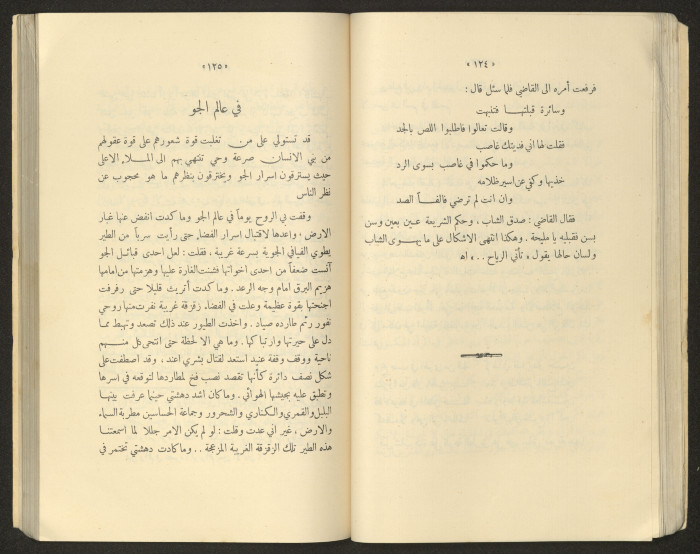 «١٢٤»
فرفعت أمره الى القاضي فلما سئل قال :
وسائرة قبلتهـا فتنبهت
وقالت تعالوا فاطلبوا اللص بالجد
فقلت لها اني فديتك غاصب
وما حكموا في غاصب بسوى الرد
خذيها وكفي عن اسير ظلامه
وان انت لم ترضي فالفـاً الصد
فقال القاضي : صدق الشاب ، وحكم الشريعة عـين بعين وسن
بسن فقبليه يا مليحة . وهكذا انتهى الاشكال على ما يهـوى الشاب
ولسان حالها يقول « تأتي الرياح .. » اه
«١٢٥»
في عالم الجو
قد تستولي على من تغلبت قوة شعورهم على قوة عقولهم
من بني الانسان صرعة وحي تنتهي بهم الى المـلاء الاعلى
حيث يسترقون اسرار الجو ويخترقون بنظرهم ما هو محجوب عن
نظر الناس
وقفت في الروح يوماً في عالم الجو وما كدت انفض عنها غبار
الارض ، واعدها لاقتبال اسرار الفضاء حتى رأيت سرباً من الطير
يطوي الفيافي الجوية بسرعة غريبة ، فقلت : لعل احدى قبائل الجو
آنست ضعفاً من احدى اخواتها فشنت الغارة عليها وهزمتها من امامها
هزيم البرق امام وجه الرعد . وما كدت أتريث قليلا حتى رفرفت
اجنحتها بقوة عظيمة وعلت في الفضاء زقزقة غريبة نفرت منها روحي
نفور رئم طارده صياد . واخذت الطيور عند ذلك تصعد وتهبط مما
دل على حيرتها وارتباكها . وما هي الا لحظة حتى انتحى كل منـهم
ناحية ووقف وقفة عنيد استعد لقتال بشري اعند ، وقد اصطفت على
شكل نصف دائرة كأنها تقصد نصب فخ لمطاردها لتوقعه في اسرها
وتطبق عليه بجيشها الهوائي . وما كان اشد دهشتي حينما عرفت بينها
البلبل والقمري والكناري والشحرور وجماعة الحساسين مطربة السماء
والارض ، غير اني عدت وقلت : لو لم يكن الامر جللا لما اسمعتنـا
هذه الطير تلك الزقزقة الغريبة المزعجة .. وما كادت دهشتي تختمر في